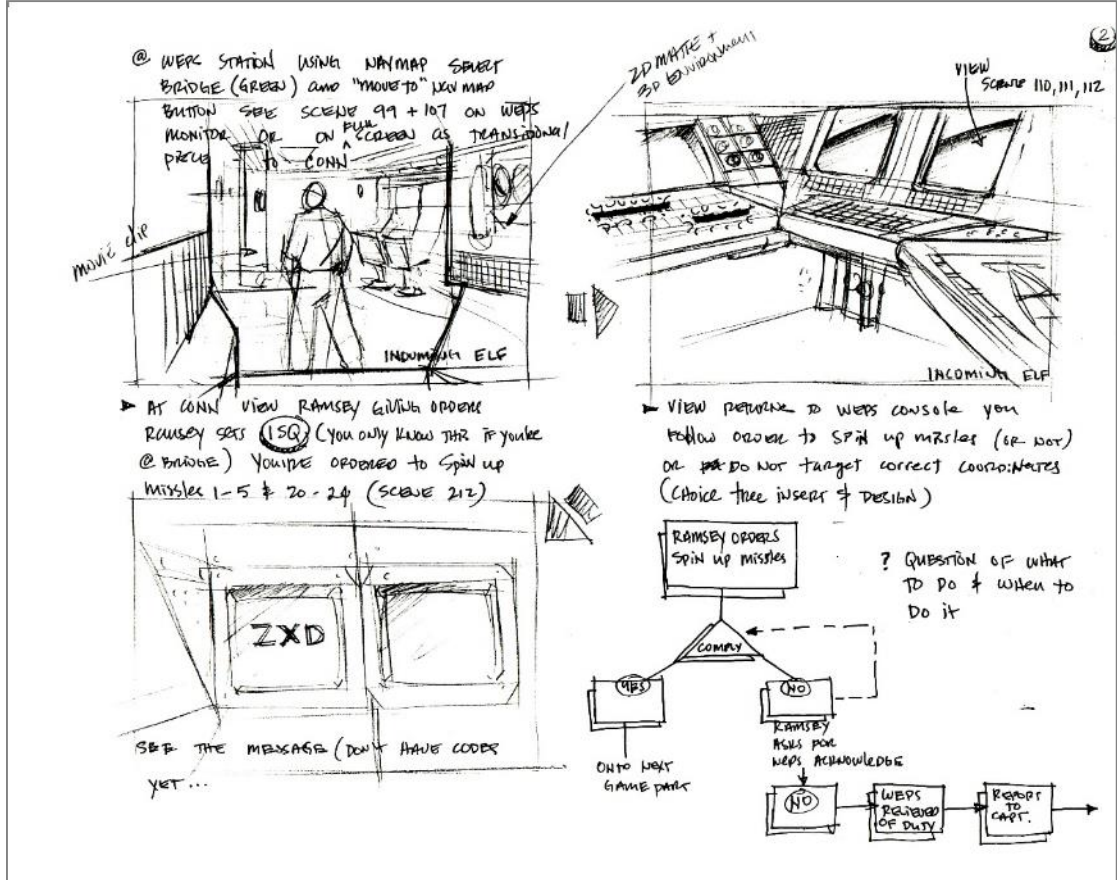 2
@ WEPS STATION USING NAVMAP SELECT
BRIDGE (GREEN) and "MOVE TO" NAV MAP
BUTTON SEE SCENE 99 + 107 ON WEPS
MONITOR OR ON FULL SCREEN as TRANSITIONAL/
PIECE to CONN
2D MATTE +
3D ENVIRONMENT
VIEW
SCENE 110, 111, 112
movie clip
INCOMING ELF
INCOMING ELF
AT CONN VIEW RAMSEY GIVING ORDERS
RAMSEY SETS 1SQ (YOU ONLY KNOW THIS IF YOU'RE
@ BRIDGE) YOU'RE ORDERED to SPIN UP
MISSLES 1-5 & 20-24 (SCENE 212)
VIEW RETURNS TO WEPS CONSOLE YOU
FOLLOW ORDER to SPIN up missles (OR NOT)
OR DO NOT target correct coordinates
(CHOICE tree INSERT & DESIGN)
ZXD
SEE THE MESSAGE (DON'T HAVE CODES
YET...
RAMSEY ORDERS
SPIN UP missles
? QUESTION OF WHAT
TO DO & WHEN TO
DO it
COMPLY
YES
NO
ONTO NEXT
GAME PART
RAMSEY
ASKS FOR
WEPS ACKNOWLEDGE
NO
WEPS
RELIEVED
OF DUTY
REPORT
TO
CAPT.